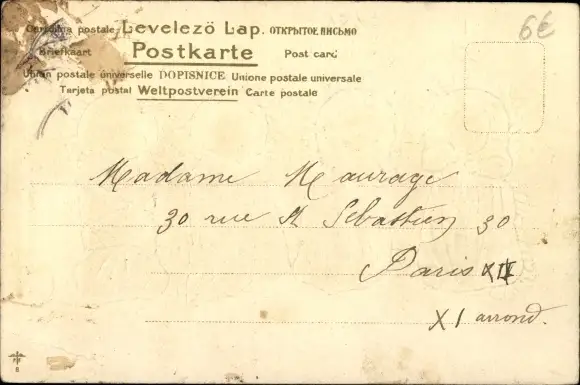 Cartolina postale Levelezö Lap. ОТКРЫТОЕ ПИСЬМО
Briefkaart Postkarte Post card
Union postale universelle DOPISNICE Unione postale universale
Tarjeta postal Weltpostverein Carte postale
6€
Madame Maurage
30 rue St Sebastien 30
Paris XI
XI arrond.
8